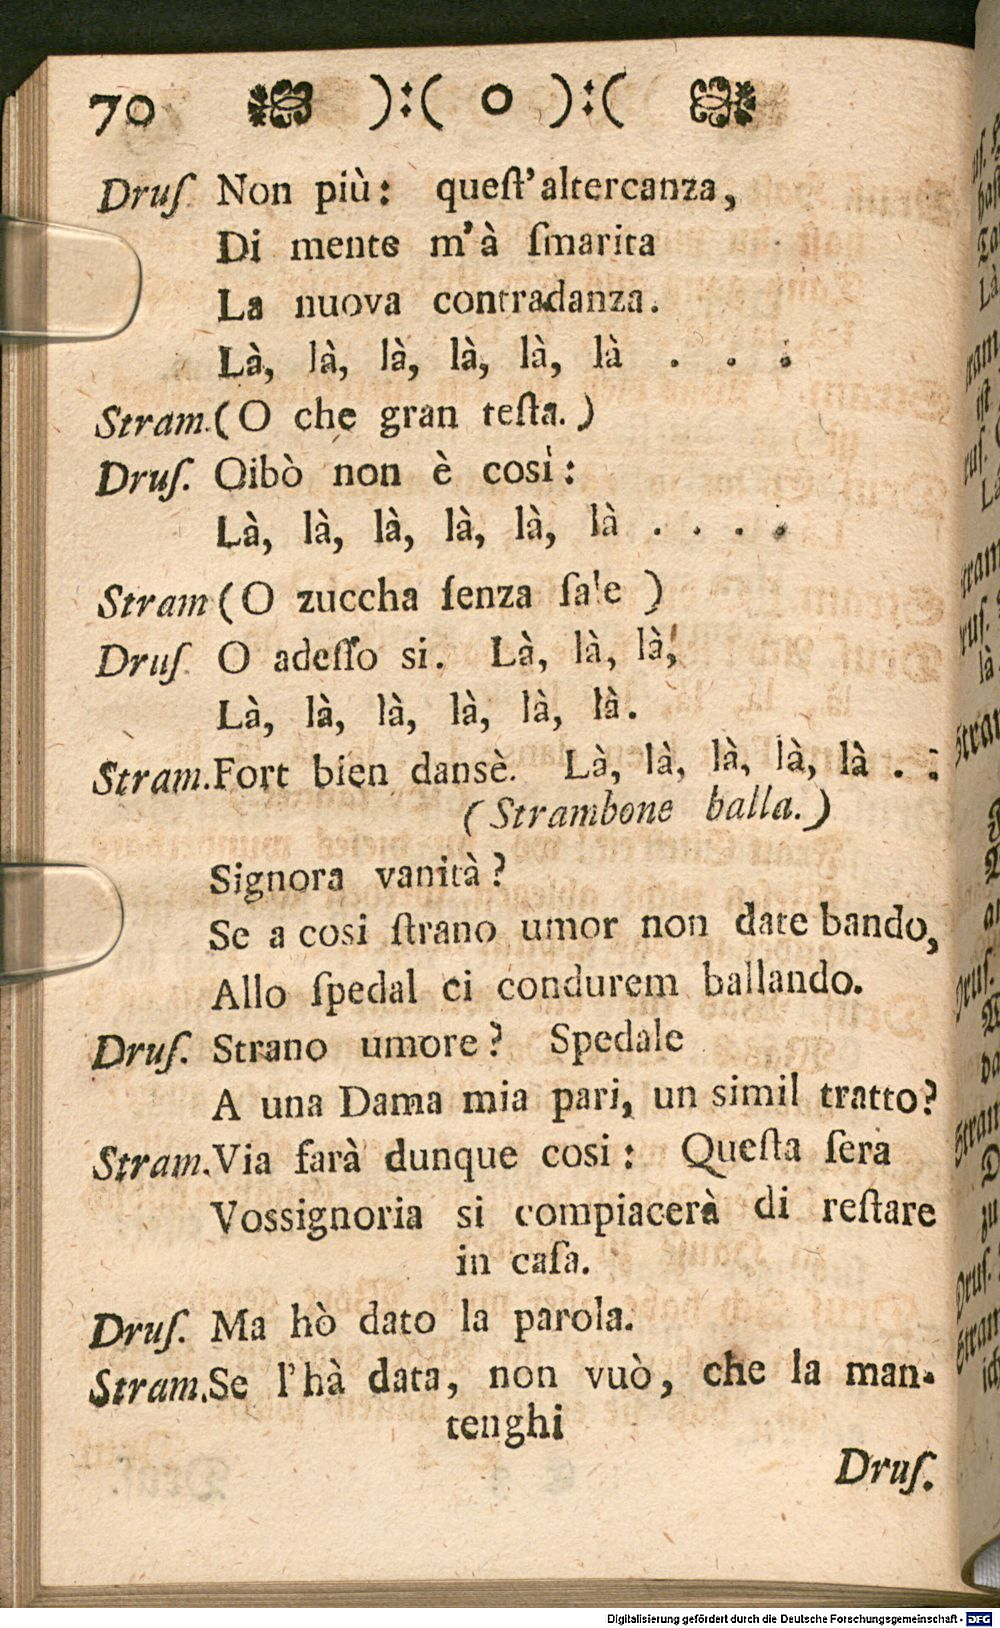 70 ):( o ):(
Druſ Non più: queſt'altercanza,
Di mente m'à ſmarita
La nuova contradanza.
Là, là, là, là, là, là . . .
Stram. (O che gran teſta.)
Druſ. Oibò non è così:
Là, là, là, là, là, là . . . .
Stram (O zuccha ſenza ſale )
Druſ. O adeſſo si. Là, là, là,
Là, là, là, là, là, là.
Stram. Fort bien dansè. Là, là, là, là, là . .
(Strambone balla.)
Signora vanità?
Se a cosi ſtrano umor non date bando,
Allo ſpedal ci condurem ballando.
Druſ. Strano umore? Spedale
A una Dama mia pari, un simil tratto?
Stram. Via farà dunque cosi: Queſta ſera
Vossignoria si compiacerà di reſtare
in caſa.
Druſ. Ma hò dato la parola.
Stram. Se l'hà data, non vuò, che la man-
tenghi
Druſ.
Digitalisierung gefördert durch die Deutsche Forschungsgemeinschaft - DFG